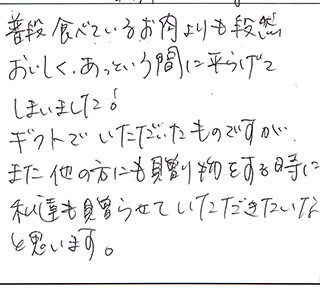 普段食べているお肉よりも段然
おいしく、あっという間に平らげて
しまいました!
ギフトでいただいたものですが、
また他の方にも貝曽り物をする時に
私達も贈らせていただきたいな
と思います。